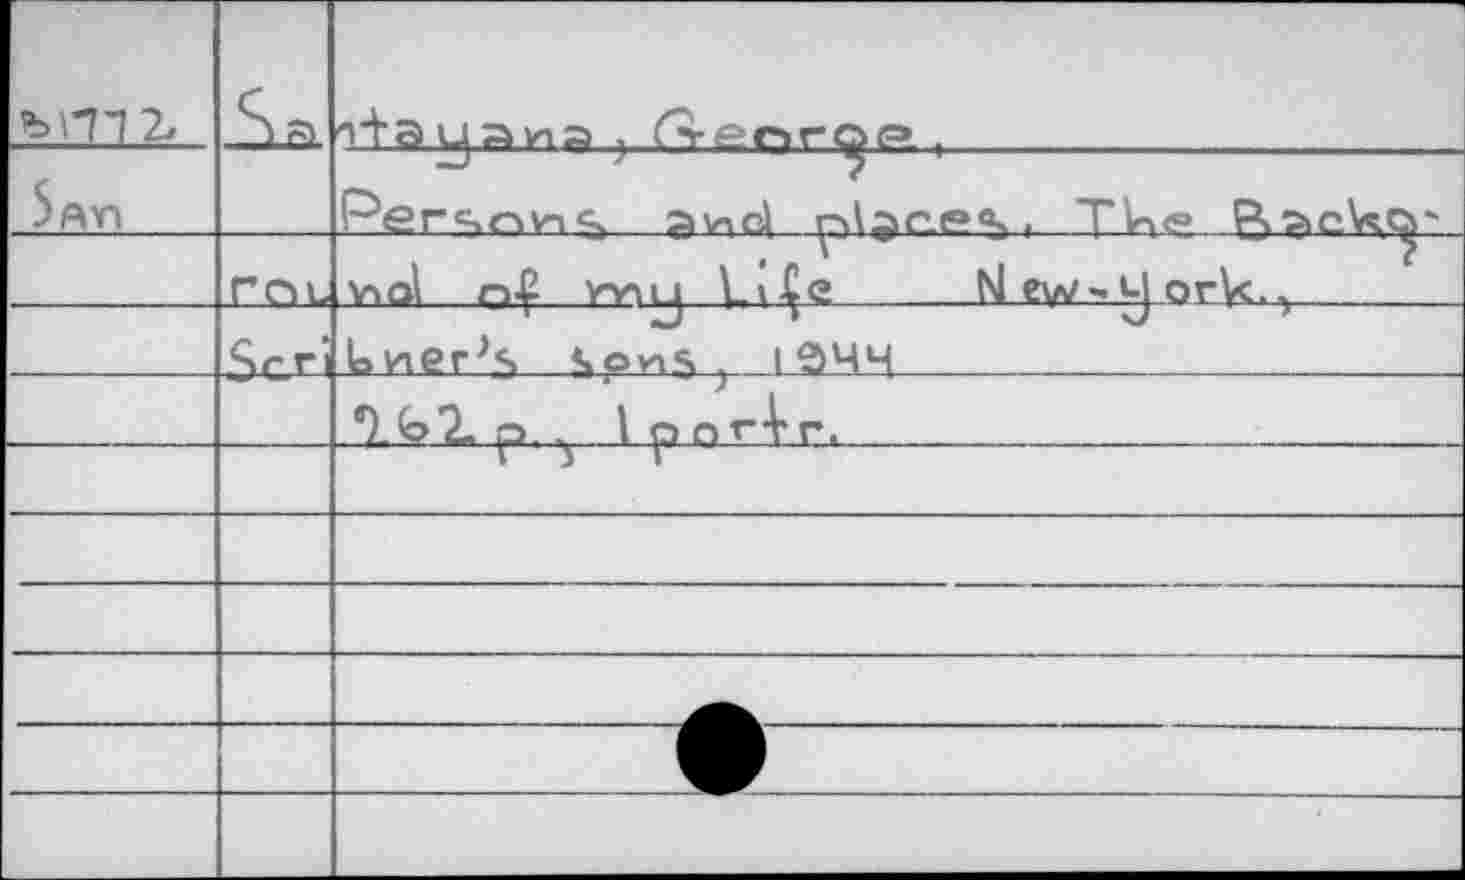 ъ1772 Santayana, George,
San Persons and places. The Backg-
round of my Life New-York.,
Scribner's sons, 1944
262 p., 1 portr.